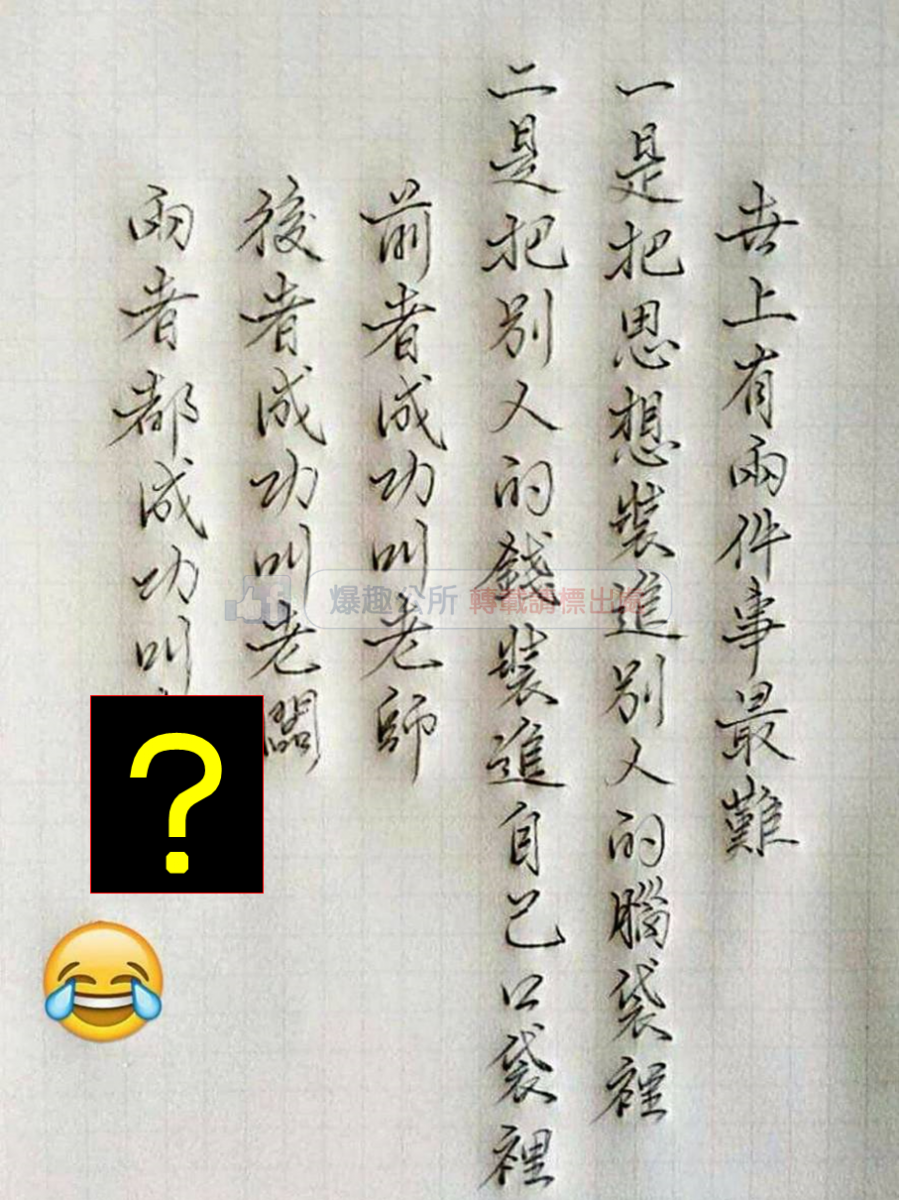 世上有兩件事最難
一是把思想裝進別人的腦袋裡
二是把別人的錢裝進自己口袋裡
前者成功叫老師
後者成功叫老闆
兩者都成功叫
?
爆趣公所 轉載請標出處